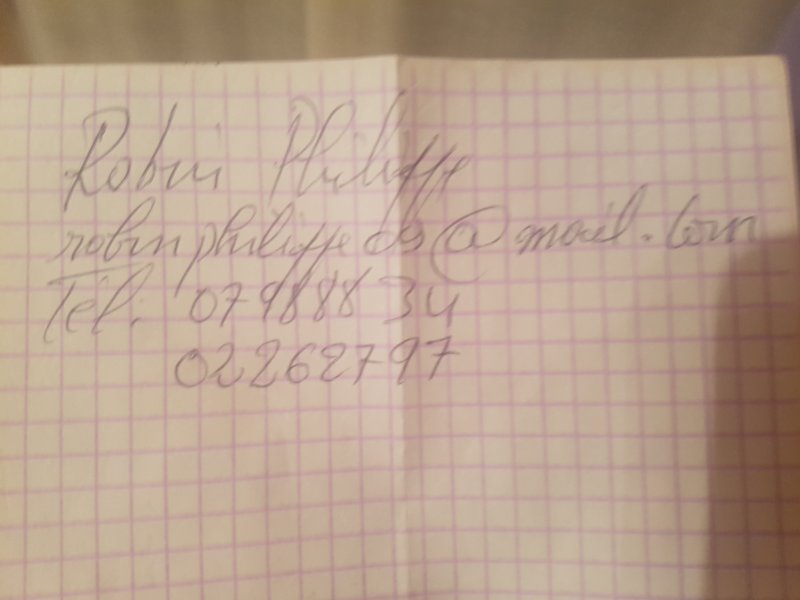 Robin Philippe
robinphilippe09@mail.com
Tél: 07988834
02262797